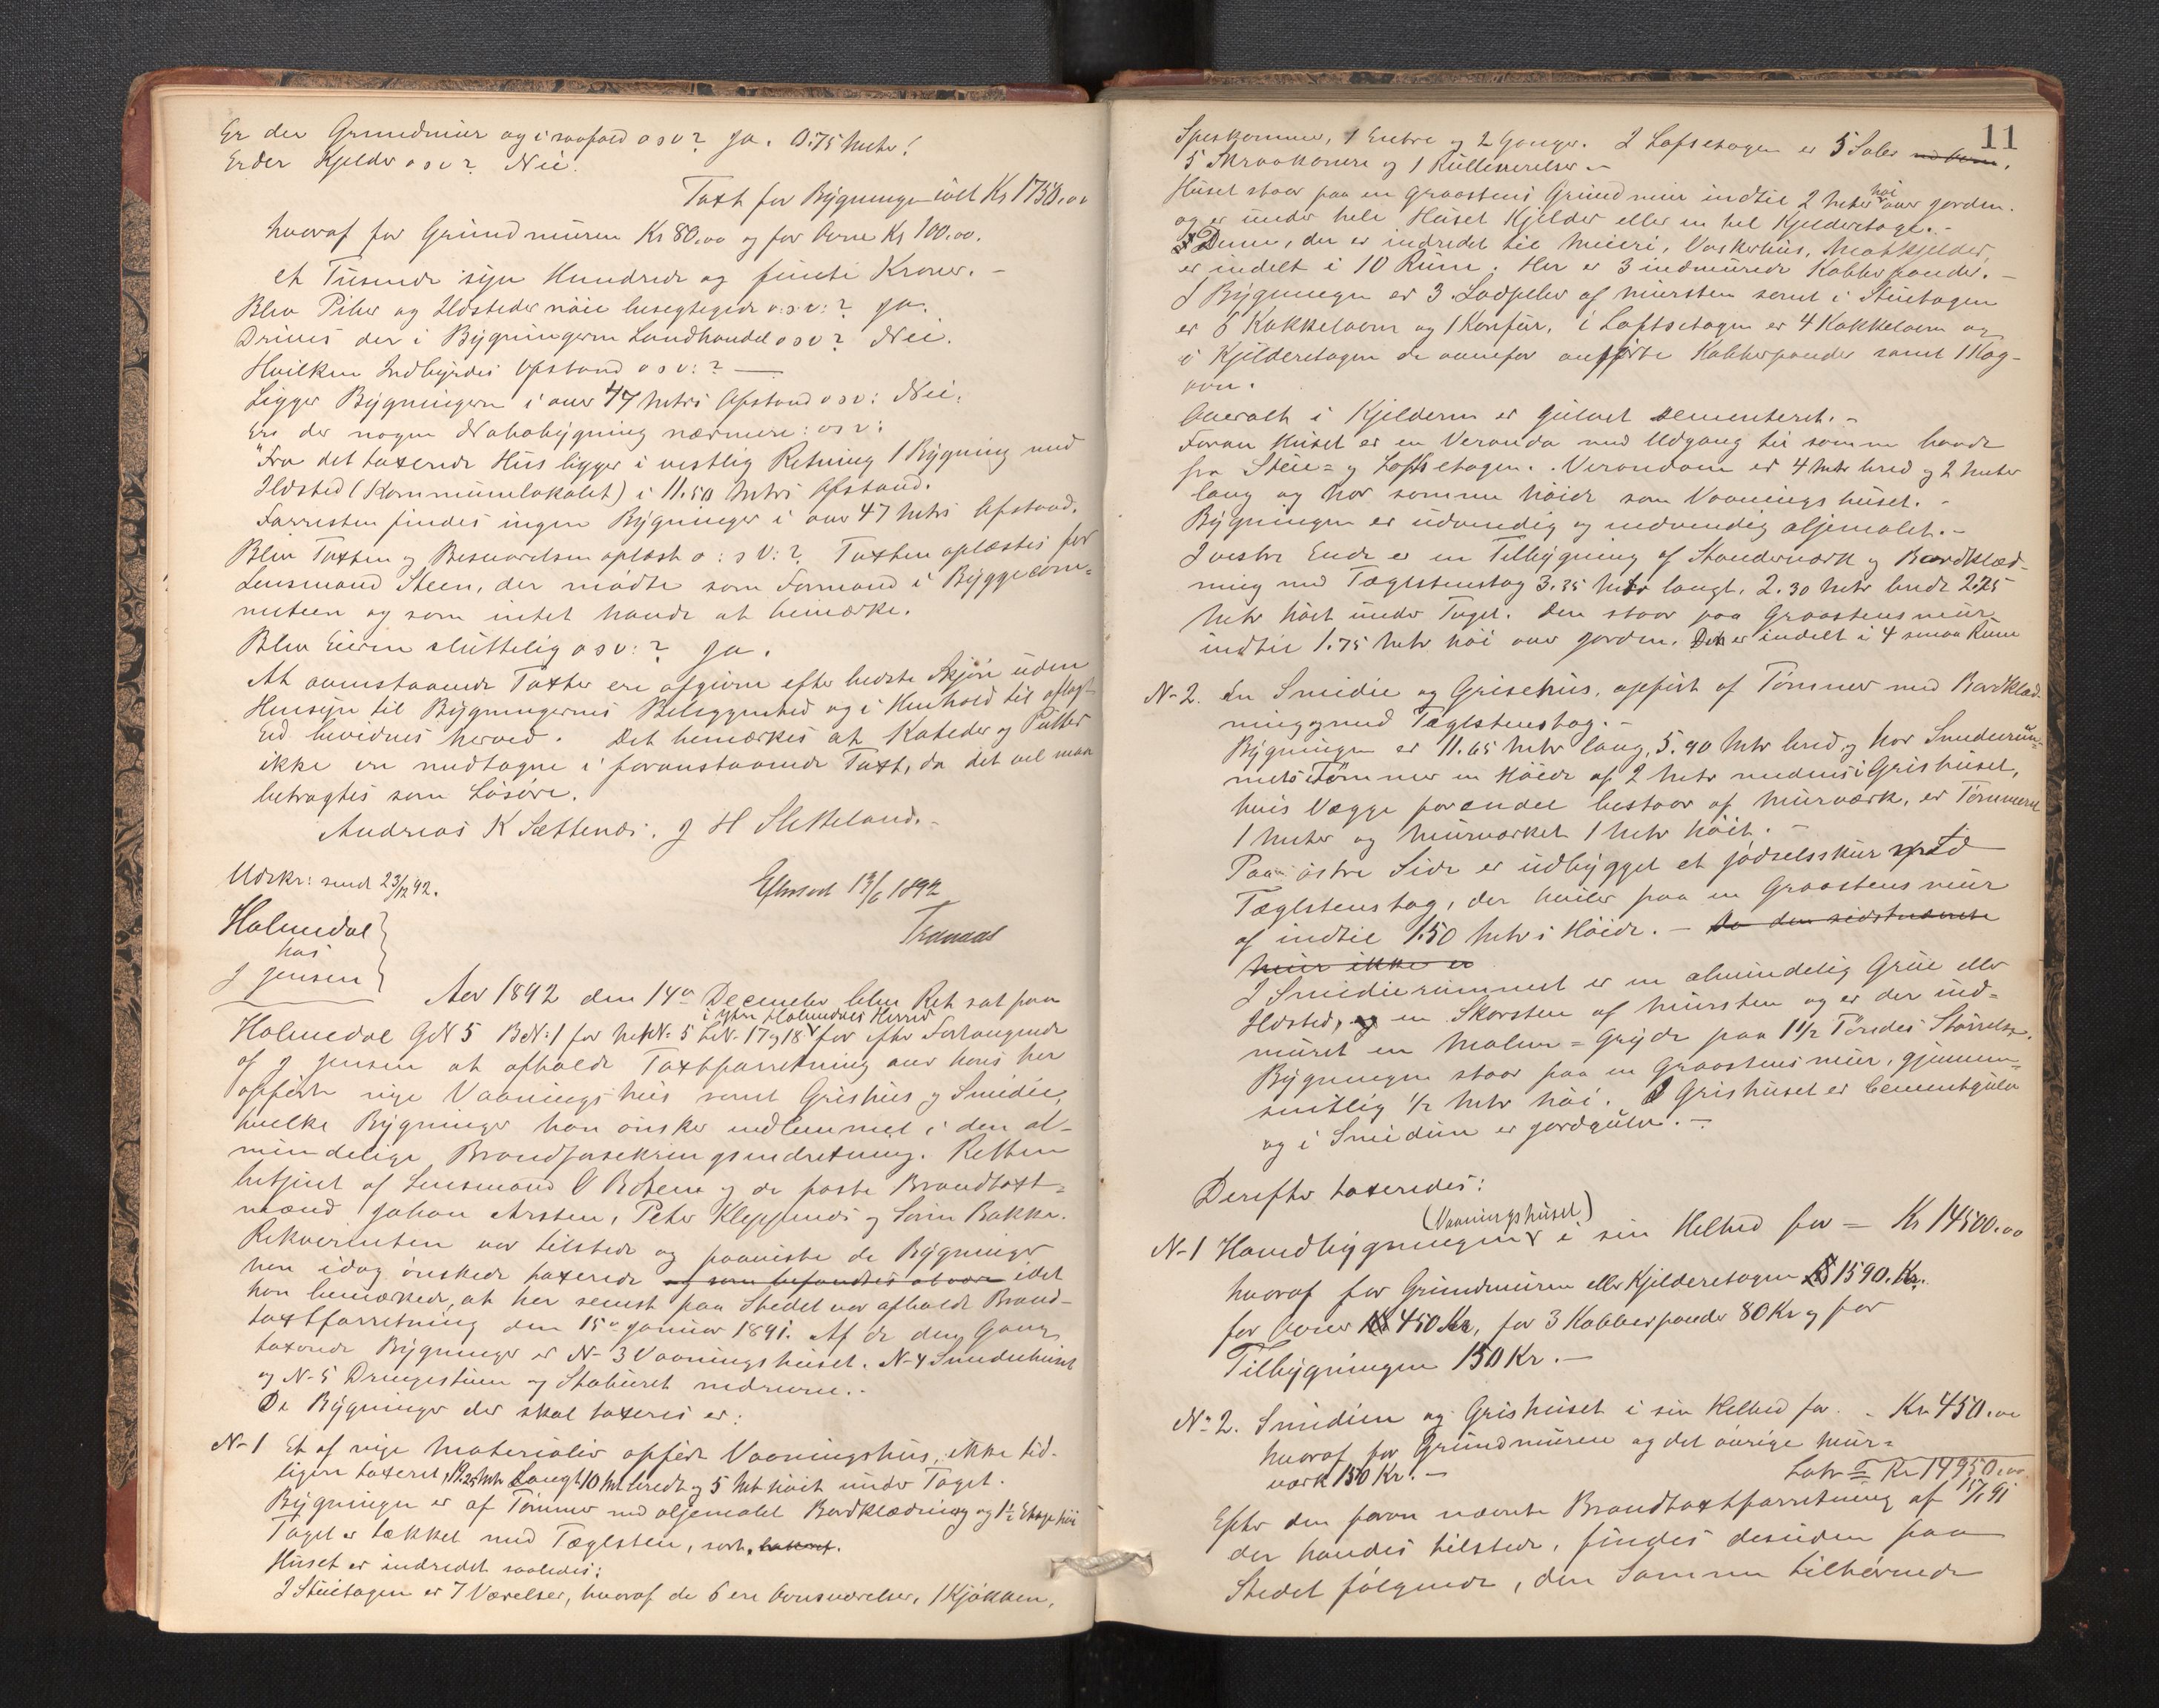 Er der Grundmur og i saafald o s v? Ja. 0.75 Meter!
Er der Kjelder o s v? Nei.
Taxt for Bygningen ialt Kr 1750.00
hvoraf for Grundmuren Kr 80.00 og for Ovne Kr 100.00.
et Tusende syv Hundrede og femti Kroner. –
Blev Piber og Ildsteder nøie besigtigede o: s v: ? Ja.
Drives der i Bygningerne Landhandel o s v? Nei.
Hvilken Indbyrdes Afstand o s v: ? —
Ligger Bygningerne i over 47 Meters Afstand o s v: Nei.
Ere der nogen Nabobygning nærmere: o s v:
"Fra det taxerede Hus ligger i vestlig Retning 1 Bygning med
Ildsted (Kommunelokalet) i 11.50 Meters Afstand.
Forresten findes ingen Bygninger i over 47 Meters Afstand.
Blev Taxten og Besvarelsen oplæst o: s v: ? Taxten oplæstes for
Lensmand Steen, der mødte som Formand i Byggecom=
miteen og som intet havde at bemærke.
Blev Eieren sluttelig o s v: ? Ja.
At ovenstaaende Taxter ere afgivne efter bedste Skjøn uden
Hensyn til Bygningernes Beliggenhed og i Henhold til aflagt
Ed bevidnes herved. Det bemærkes at Kateder og Pulter
ikke ere medtagne i foranstaaende Taxt, da det vel maa
betragtes som Løsøre.
Andreas K Sættenes. J H Sletteland. –
Udskr: sendt 23/12 92.
Efterset 13/6 1892
Holmedal
hos
J Jensen
Aar 1892 den 14de December blev Ret sat paa
i ytre Holmedals Herred
Holmedal GN 5 BN: 1 for MtN: 5 LN. 17 og 18 for efter Forlangende
af J Jensen at afholde Taxtforretning over hans her
opførte nye Vaaningshus samt Grishus og Smidie,
hvilke Bygninger han ønsker indlemmet i den al-
mindelige Brandforsikringsindretning. Retten
betjent af Lensmand O Rotene og de faste Brandtaxt=
mænd Johan Arsten, Peter Kleppenes og Søren Bakke.
Rekvirenten var tilstede og paaviste de Bygninger
han idag ønskede taxerede og som befandtes at være idet
han bemærkede, at her senest paa Stedet var afholdt Brand-
taxtforretning den 15de Januar 1891. Af de den Gang
taxerede Bygninger er N- 3 Vaaningshuset. N- 4 Smidehuset
og N- 5 Drengestuen og Staburet nedrevne. -
De Bygninger der skal taxeres er:
N- 1 Et af nye Materialier opført Vaaningshus, ikke tid-
ligere taxeret, 19.25 Mtr langt 10 Mtr bredt og 5 Mtr høit under Taget.
Bygningen er af Tømmer med oljemalet Bordklædning og 1½ Etage høi
Taget er tækket med Teglsten, sort,
Huset er indredet saaledes:
I Stuetagen er 7 Værelser, hvoraf de 6 ere Ovnsværelser, 1 Kjøkken,
11
Speskammer, 1 Entre og 2 Gange. I Loftsetagen er 5 Saler
5 Skraakamre og 1 Rulleværelse –
Huset staar paa en Graastens Grundmur indtil 2 Meter høi over Jorden.
og er under hele Huset Kjelder eller en hel Kjelderetage. –
Denne, der er indredet til Meieri, Vaskerhus, Matkjelder,
er indelt i 10 Rum. Her er 3 indmurede Kobberpander. –
I Bygningen er 3 Lodpiber af Mursten samt i Stuetagen
er 6 Kakkelovne og 1 Komfur, i Loftsetagen er 4 Kakkelovne og
i Kjelderetagen de ovenfor anførte Kobberpander samt 1 Kog-
ovn.
Overalt i Kjelderen er Gulvet sementeret. –
Foran Huset er en Veranda med Udgang til samme baade
fra Stue= og Loftsetagen. Verandaen er 4 Mtr bred og 2 Meter
lang og har samme Høide som Vaaningshuset. –
Bygningen er udvendig og indvendig oljemalet. –
I vestre Ende er en Tilbygning af Standerværk og Bordklæd-
ning med Teglstenstag 3.35 Mtr langt, 2.30 Mtr bredt 2.25
Mtr høit under Taget. Den staar paa Graastensmur
indtil 1.75 Mtr høi over Jorden. Den er indelt i 4 smaa Rum
N- 2. En Smidie og Grisehus, opført af Tømmer med Bordklæd-
ning og med Teglstenstag. –
Bygningen er 11.65 Mtr lang, 5.90 Mtr bred og har Smiderum=
mets Tømmer en Høide af 2 Mtr medens i Grishuset,
hvis Vægge forøvrigt bestaar af Murværk, er Tømmeret
1 Meter og Murværket 1 Mtr høit. –
Paa østre Side er udbygget et Gjødselsskur med
Teglstenstag, der hviler paa en Graastensmur
af indtil 1.50 Mtr i Høide. – Da den sidstnævnte
Mur ikke er
I Smidierummet er en almindelig Grue eller
Ildsted, og en Skorsten af Mursten og er der ind=
muret en Malm=Gryde paa 1½ Tøndes Størrelse.
Bygningen staar paa en Graastensmur, gjennem=
snitlig ½ Mtr høi. I Grishuset er Cementgulv
og i Smidien er Jordgulv. –
Derefter taxeredes:
(Vaaningshuset)
N- 1 Hovedbygningen i sin Helhed for – Kr 14500.00
hvoraf for Grundmuren eller Kjelderetagen 1590. Kr.
for Ovner 450 Kr, for 3 Kobberpander 80 Kr og for
Tilbygningen 150 Kr. –
N- 2. Smidien og Grishuset i sin Helhed for – Kr 450.00
hvoraf for Grundmuren og det øvrige Mur=
værk 150 Kr. –
Latr = Kr 14950.00
Efter den foran nævnte Brandtaxtforretning af 15/1 91
der havdes tilstede, findes desuden paa
Stedet følgende, den samme tilhørende